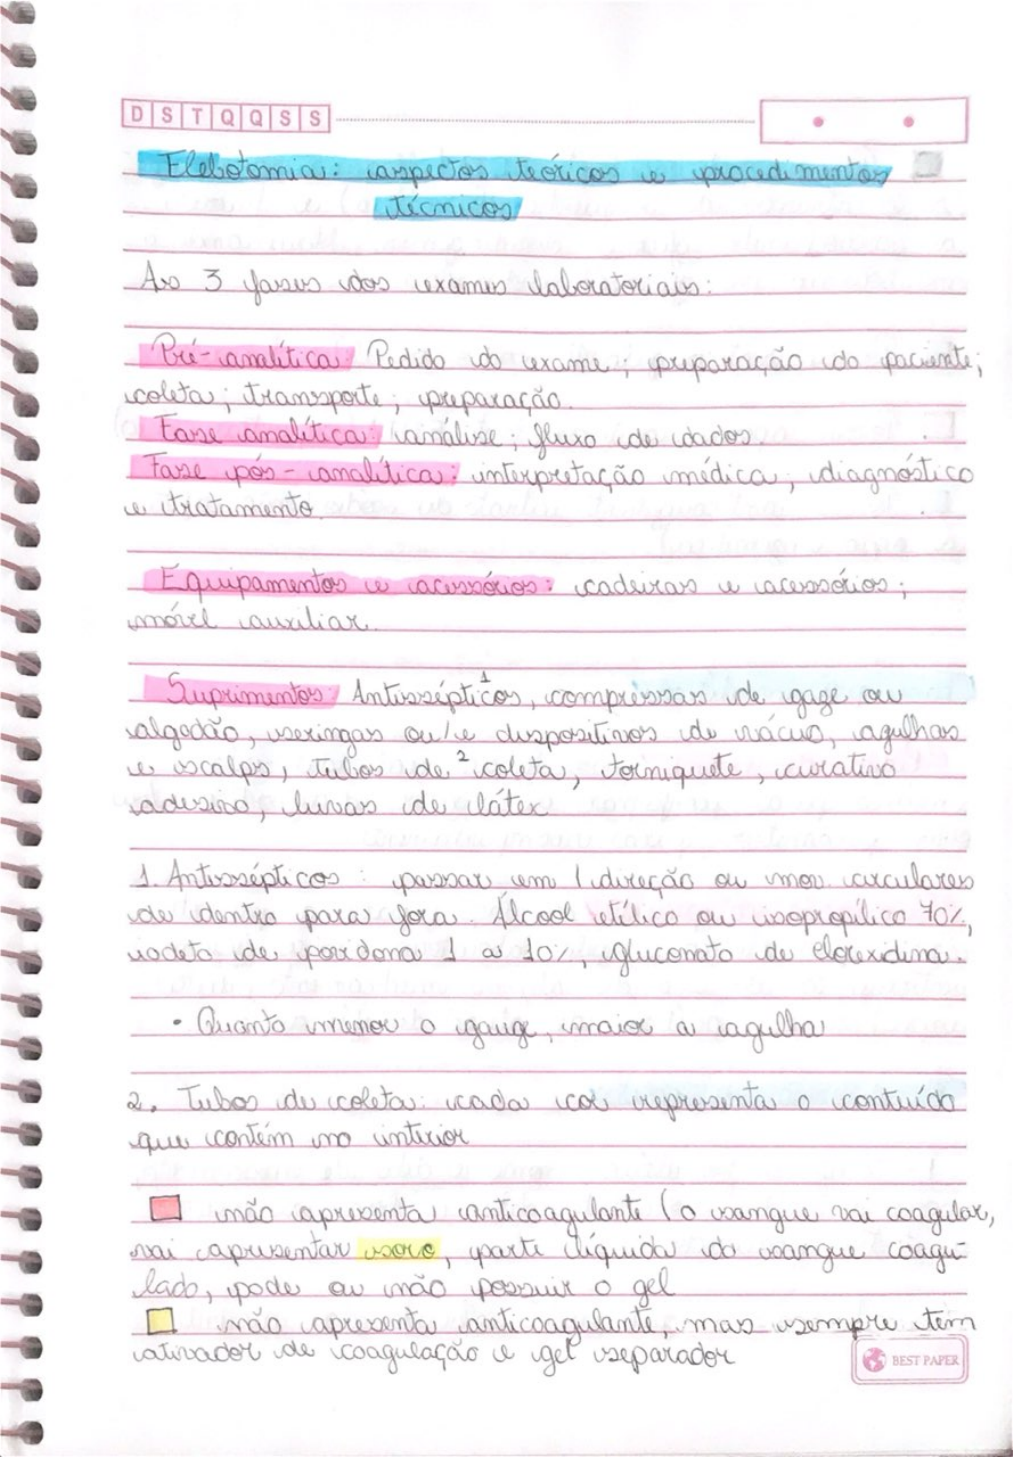 D S T Q Q S S
Flebotomia: aspectos teóricos e procedimentos
técnicos
As 3 fases dos exames laboratoriais:
Pré-analítica: Pedido do exame; preparação do paciente;
coleta; transporte; preparação.
Fase analítica: análise; fluxo de dados
Fase pós-analítica: interpretação médica, diagnóstico
e tratamento
Equipamentos e acessórios: cadeiras e acessórios;
móvel auxiliar.
Suprimentos: Antissépticos¹, compressas de gaze ou
algodão, seringas ou/e dispositivos de vácuo, agulhas
e scalps, tubos de ²coleta, torniquete, curativo
adesivo, luvas de látex
1. Antissépticos: passar em 1 direção ou mov. circulares
de dentro para fora. Álcool etílico ou isopropílico 70%,
iodeto de povidona 1 a 10%, gluconato de clorexidina.
• Quanto menor o gauge, maior a agulha
2. Tubos de coleta: cada cor representa o conteúdo
que contém no interior
não apresenta anticoagulante (o sangue vai coagular,
vai apresentar soro, parte líquida do sangue coagu-
lado, pode ou não possuir o gel
não apresenta anticoagulante, mas sempre tem
ativador de coagulação e gel separador
BEST PAPER